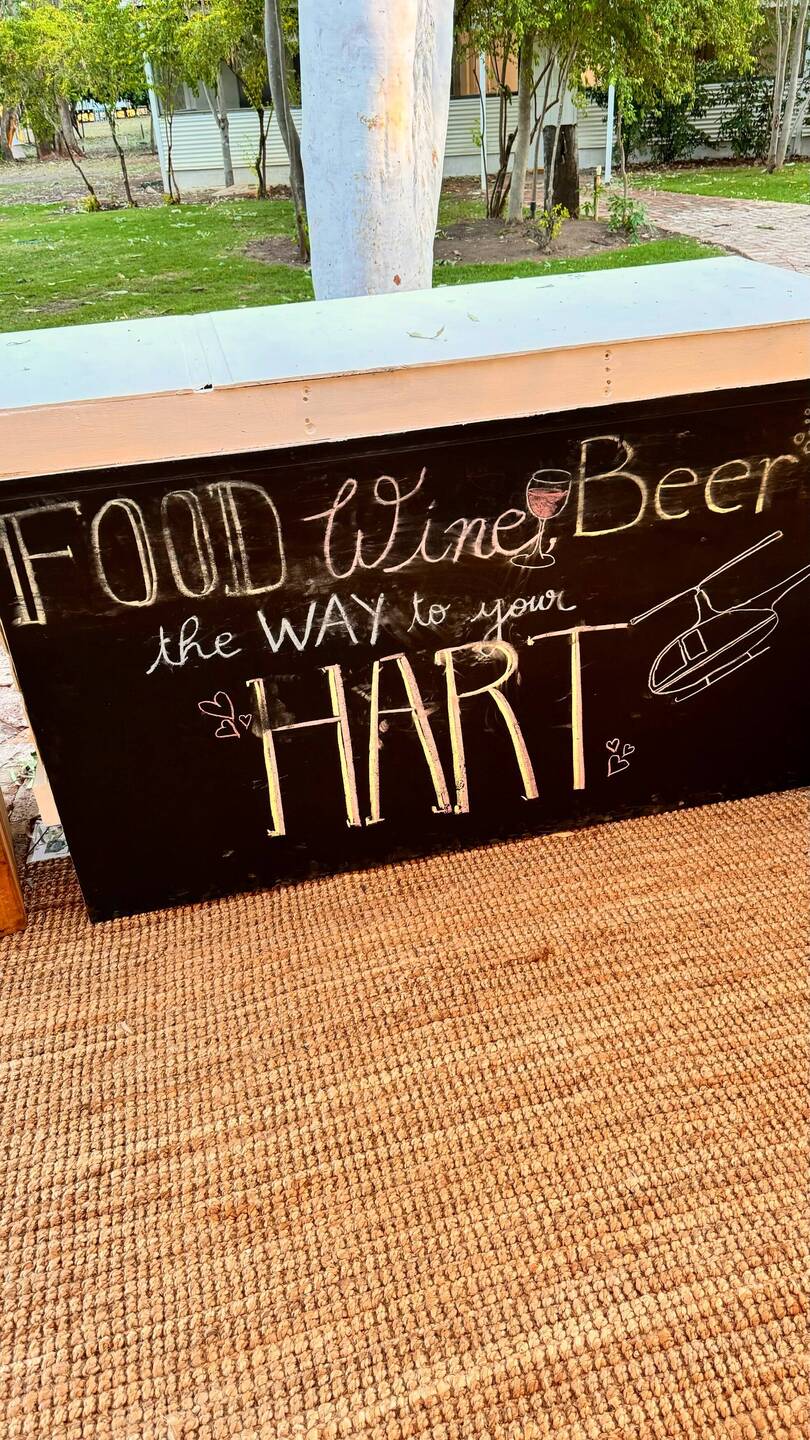 FOOD Wine Beer
the WAY to your
HART